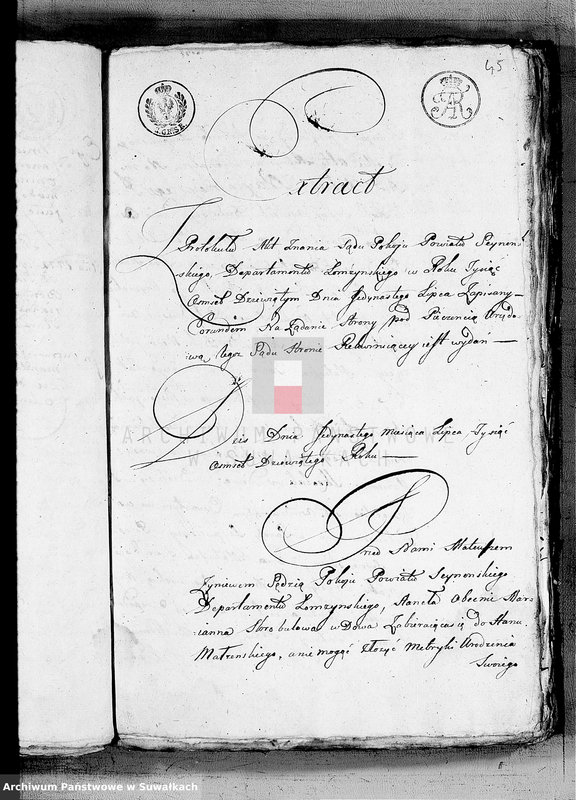 45
Extract
Z Protokułu Akt Znania Sądu Pokoju Powiatu Seynen
skiego, Departamentu Łomżynskiego w Roku Tysiąc
Osmset Dziewiątym Dnia Jedynastego Lipca Zapisany
Corundem Na Żądanie Strony pod Pieczęcią Urzędo
wą tegoż Sądu Stronie Rekwiruiącey iest wydan
Dzis Dnia Jedynastego miesiąca Lipca, Tysiąc
Osmset Dziewiątego Roku
Przed Nami Mateuszem
Sędzią Pokoju Powiatu Seynenskiego
Departamentu Łomzynskiego, stanęła Obecnie Mary
ianna Skrobutowa wdowa Zabieraiąca się do Stanu
Małżenskiego, a nie mogąc złożyć Metryki Urodzenia
Swoiego
ARCHIWUM PAŃSTWOWE
W SUWAŁKACH
Archiwum Państwowe w Suwałkach